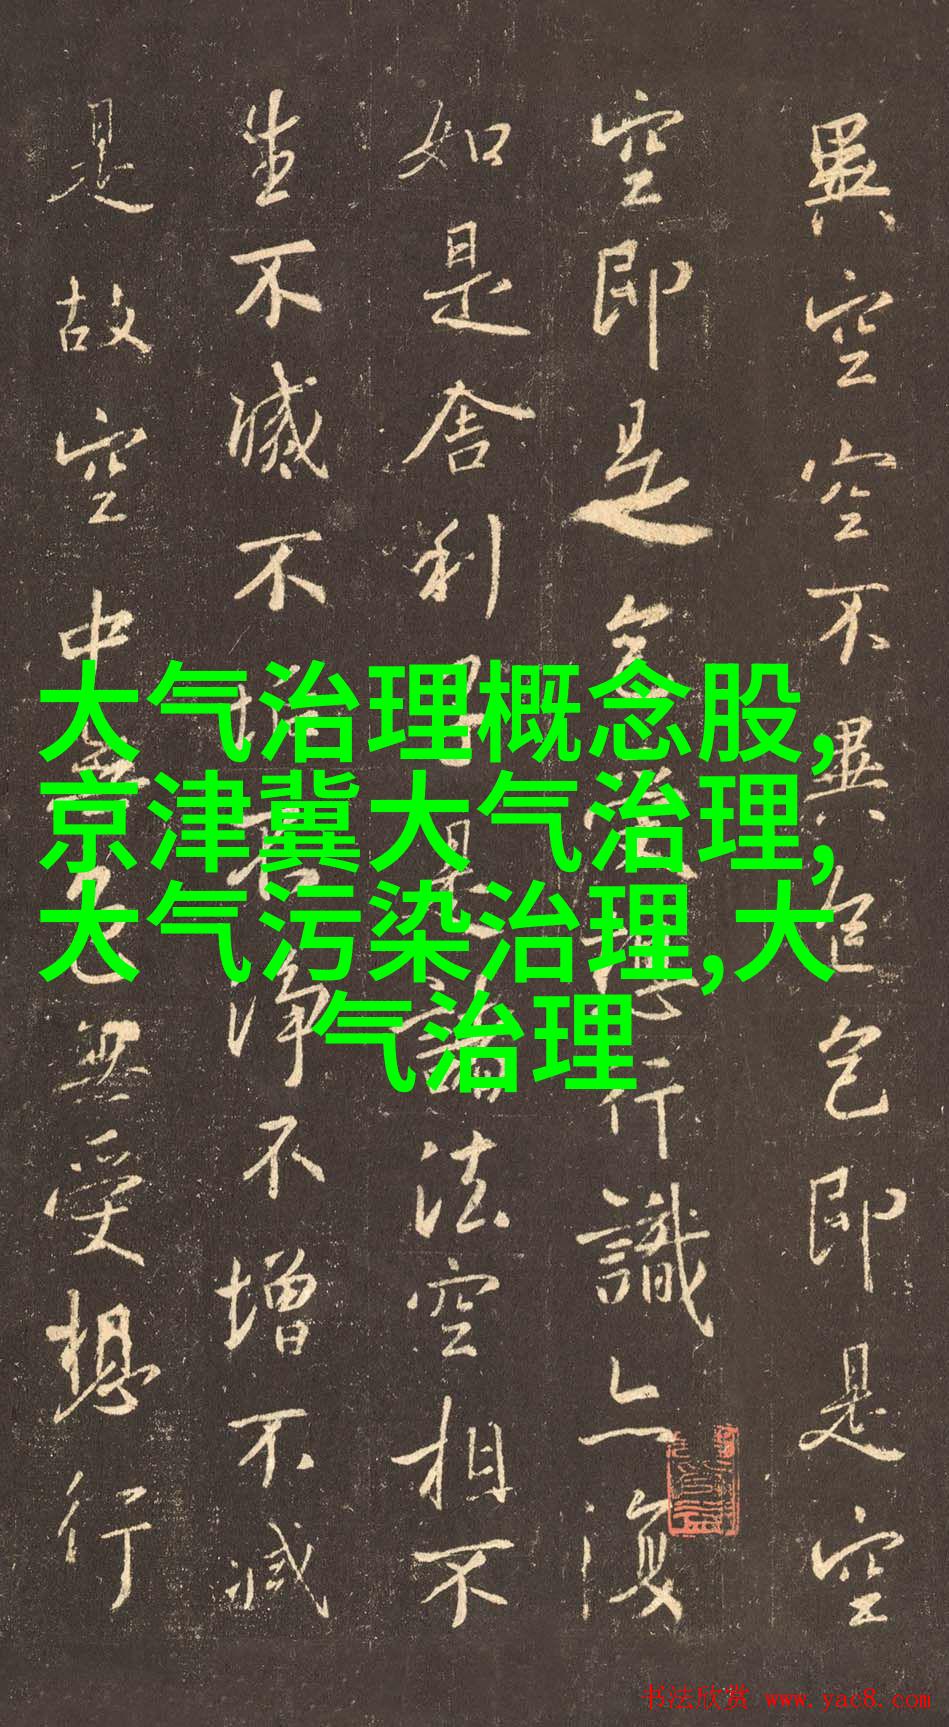 異空空不異色色即是空
空即是色受想行識亦復
如是舍利子是諸法空相不
生不滅不垢不淨不增不減
是故空中無色無受想行
大气治理概念股,
京津冀大气治理,
大气污染治理,大
气治理
书法欣赏 www.yac8.com